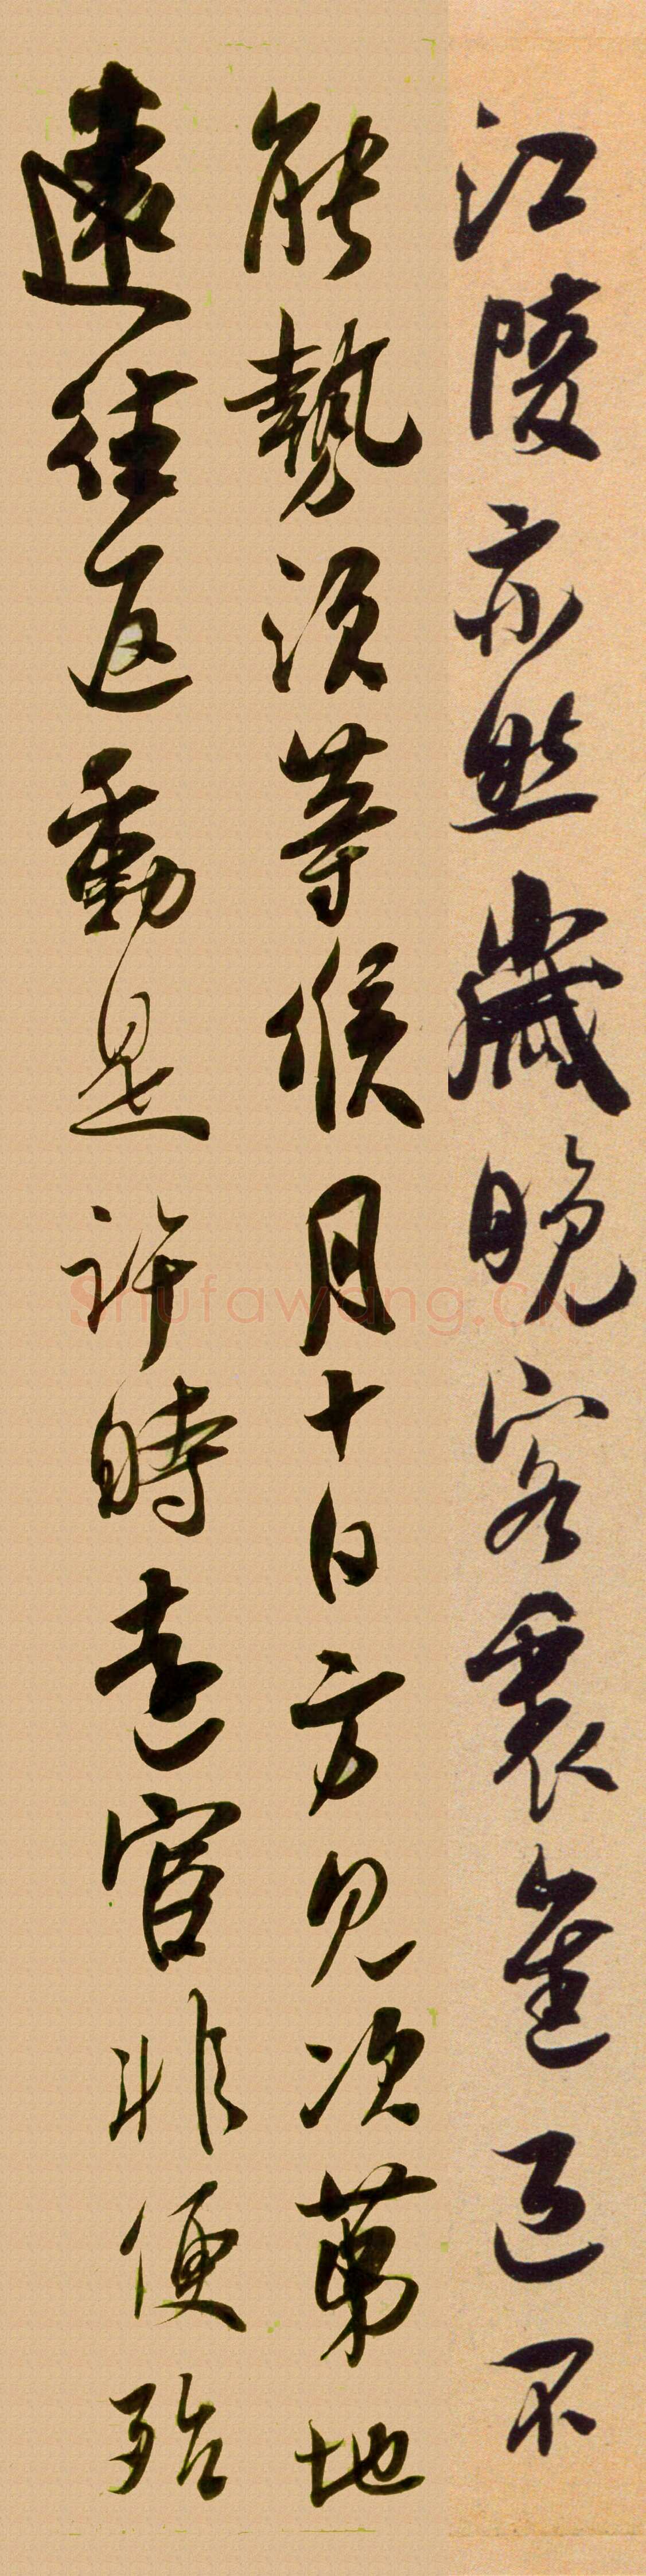 江陵亦然歲晚客裏進退不
能勢須等候月十日方見次第地
遠往返動是許時遠官非便殆
Shufawang.cn